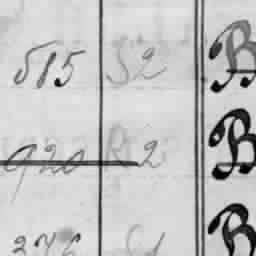 515 S2 B
920 R2 B
376 S1 B